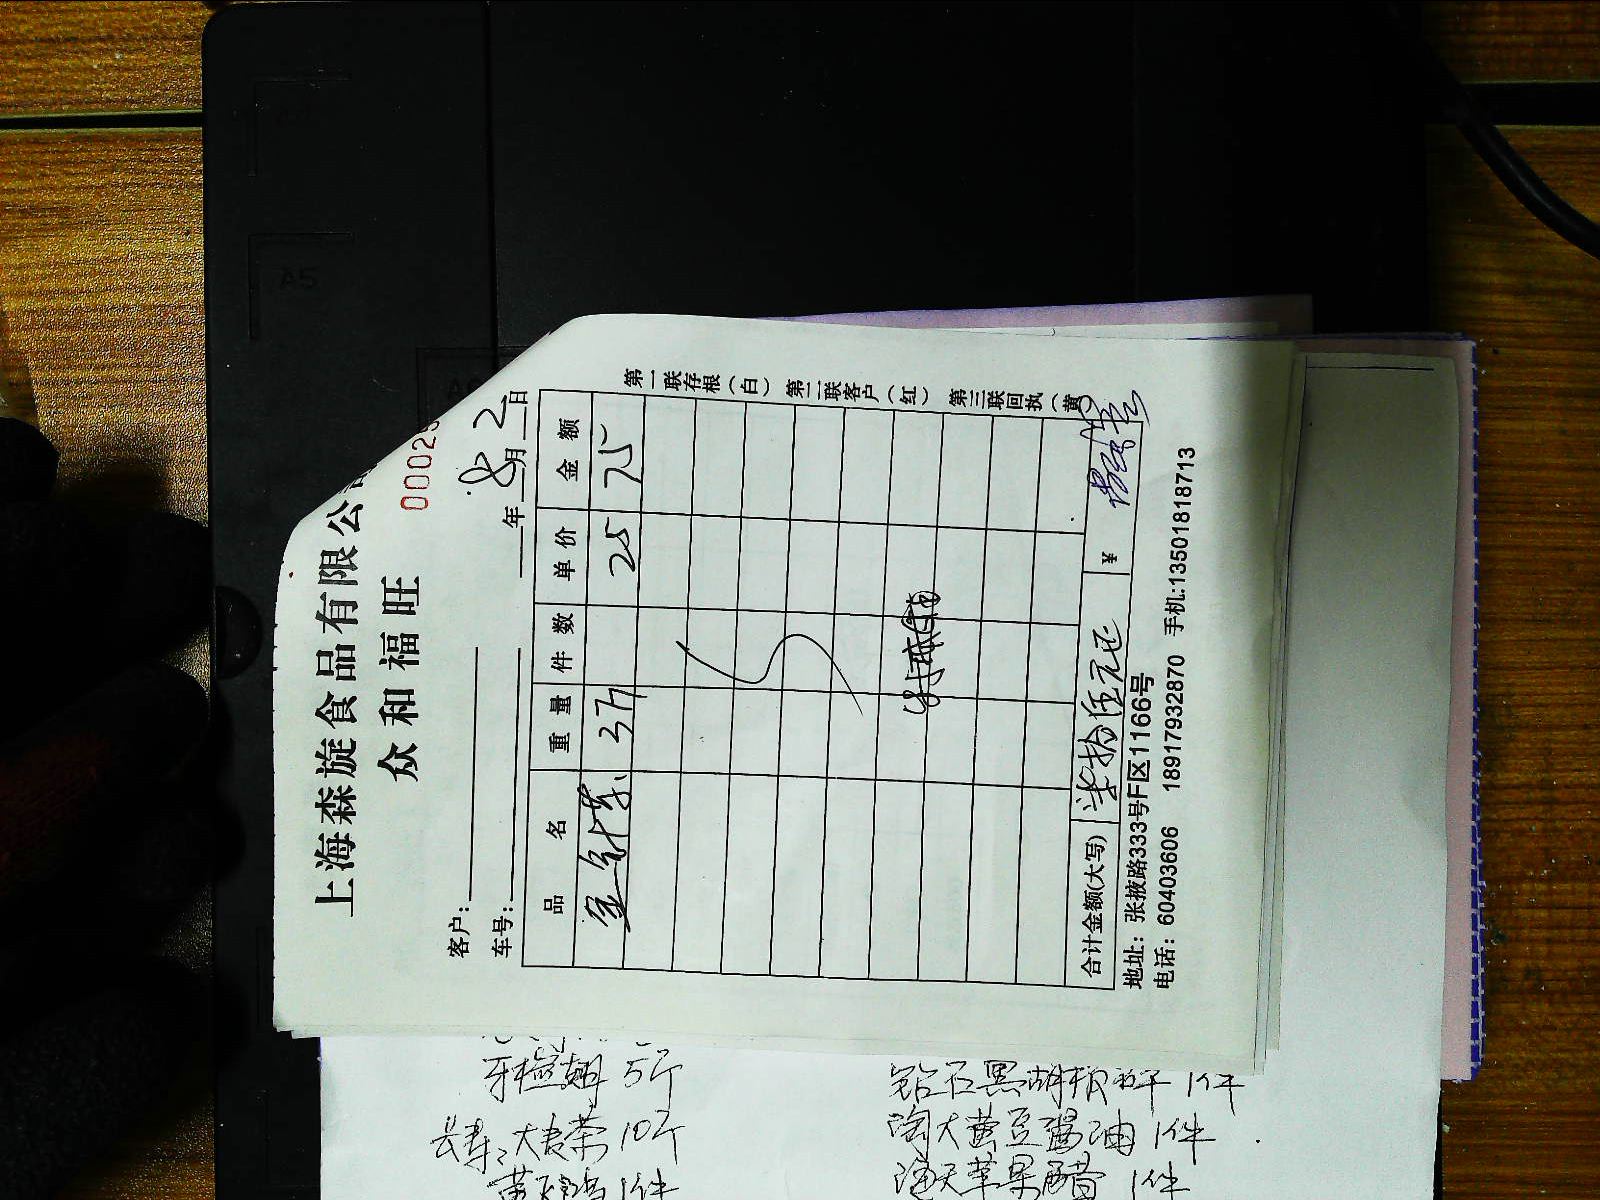 上海森旋食品有限公
众和福旺
00025
客户:
车号: 年 8 月 2 日
品名 重量 件数 单价 金额
金针菜 3斤 25 75
合计金额(大写) 柒拾伍元正 ¥
地址: 张掖路333号F区1166号
电话: 60403606 18917932870 手机:13501818713
第一联存根(白) 第二联客户(红) 第三联回执(黄
A5
5斤
长寿 大麦茶 10斤
1件
钻石黑胡椒 1件
淘大黄豆酱油 1件
海天苹果醋 1件